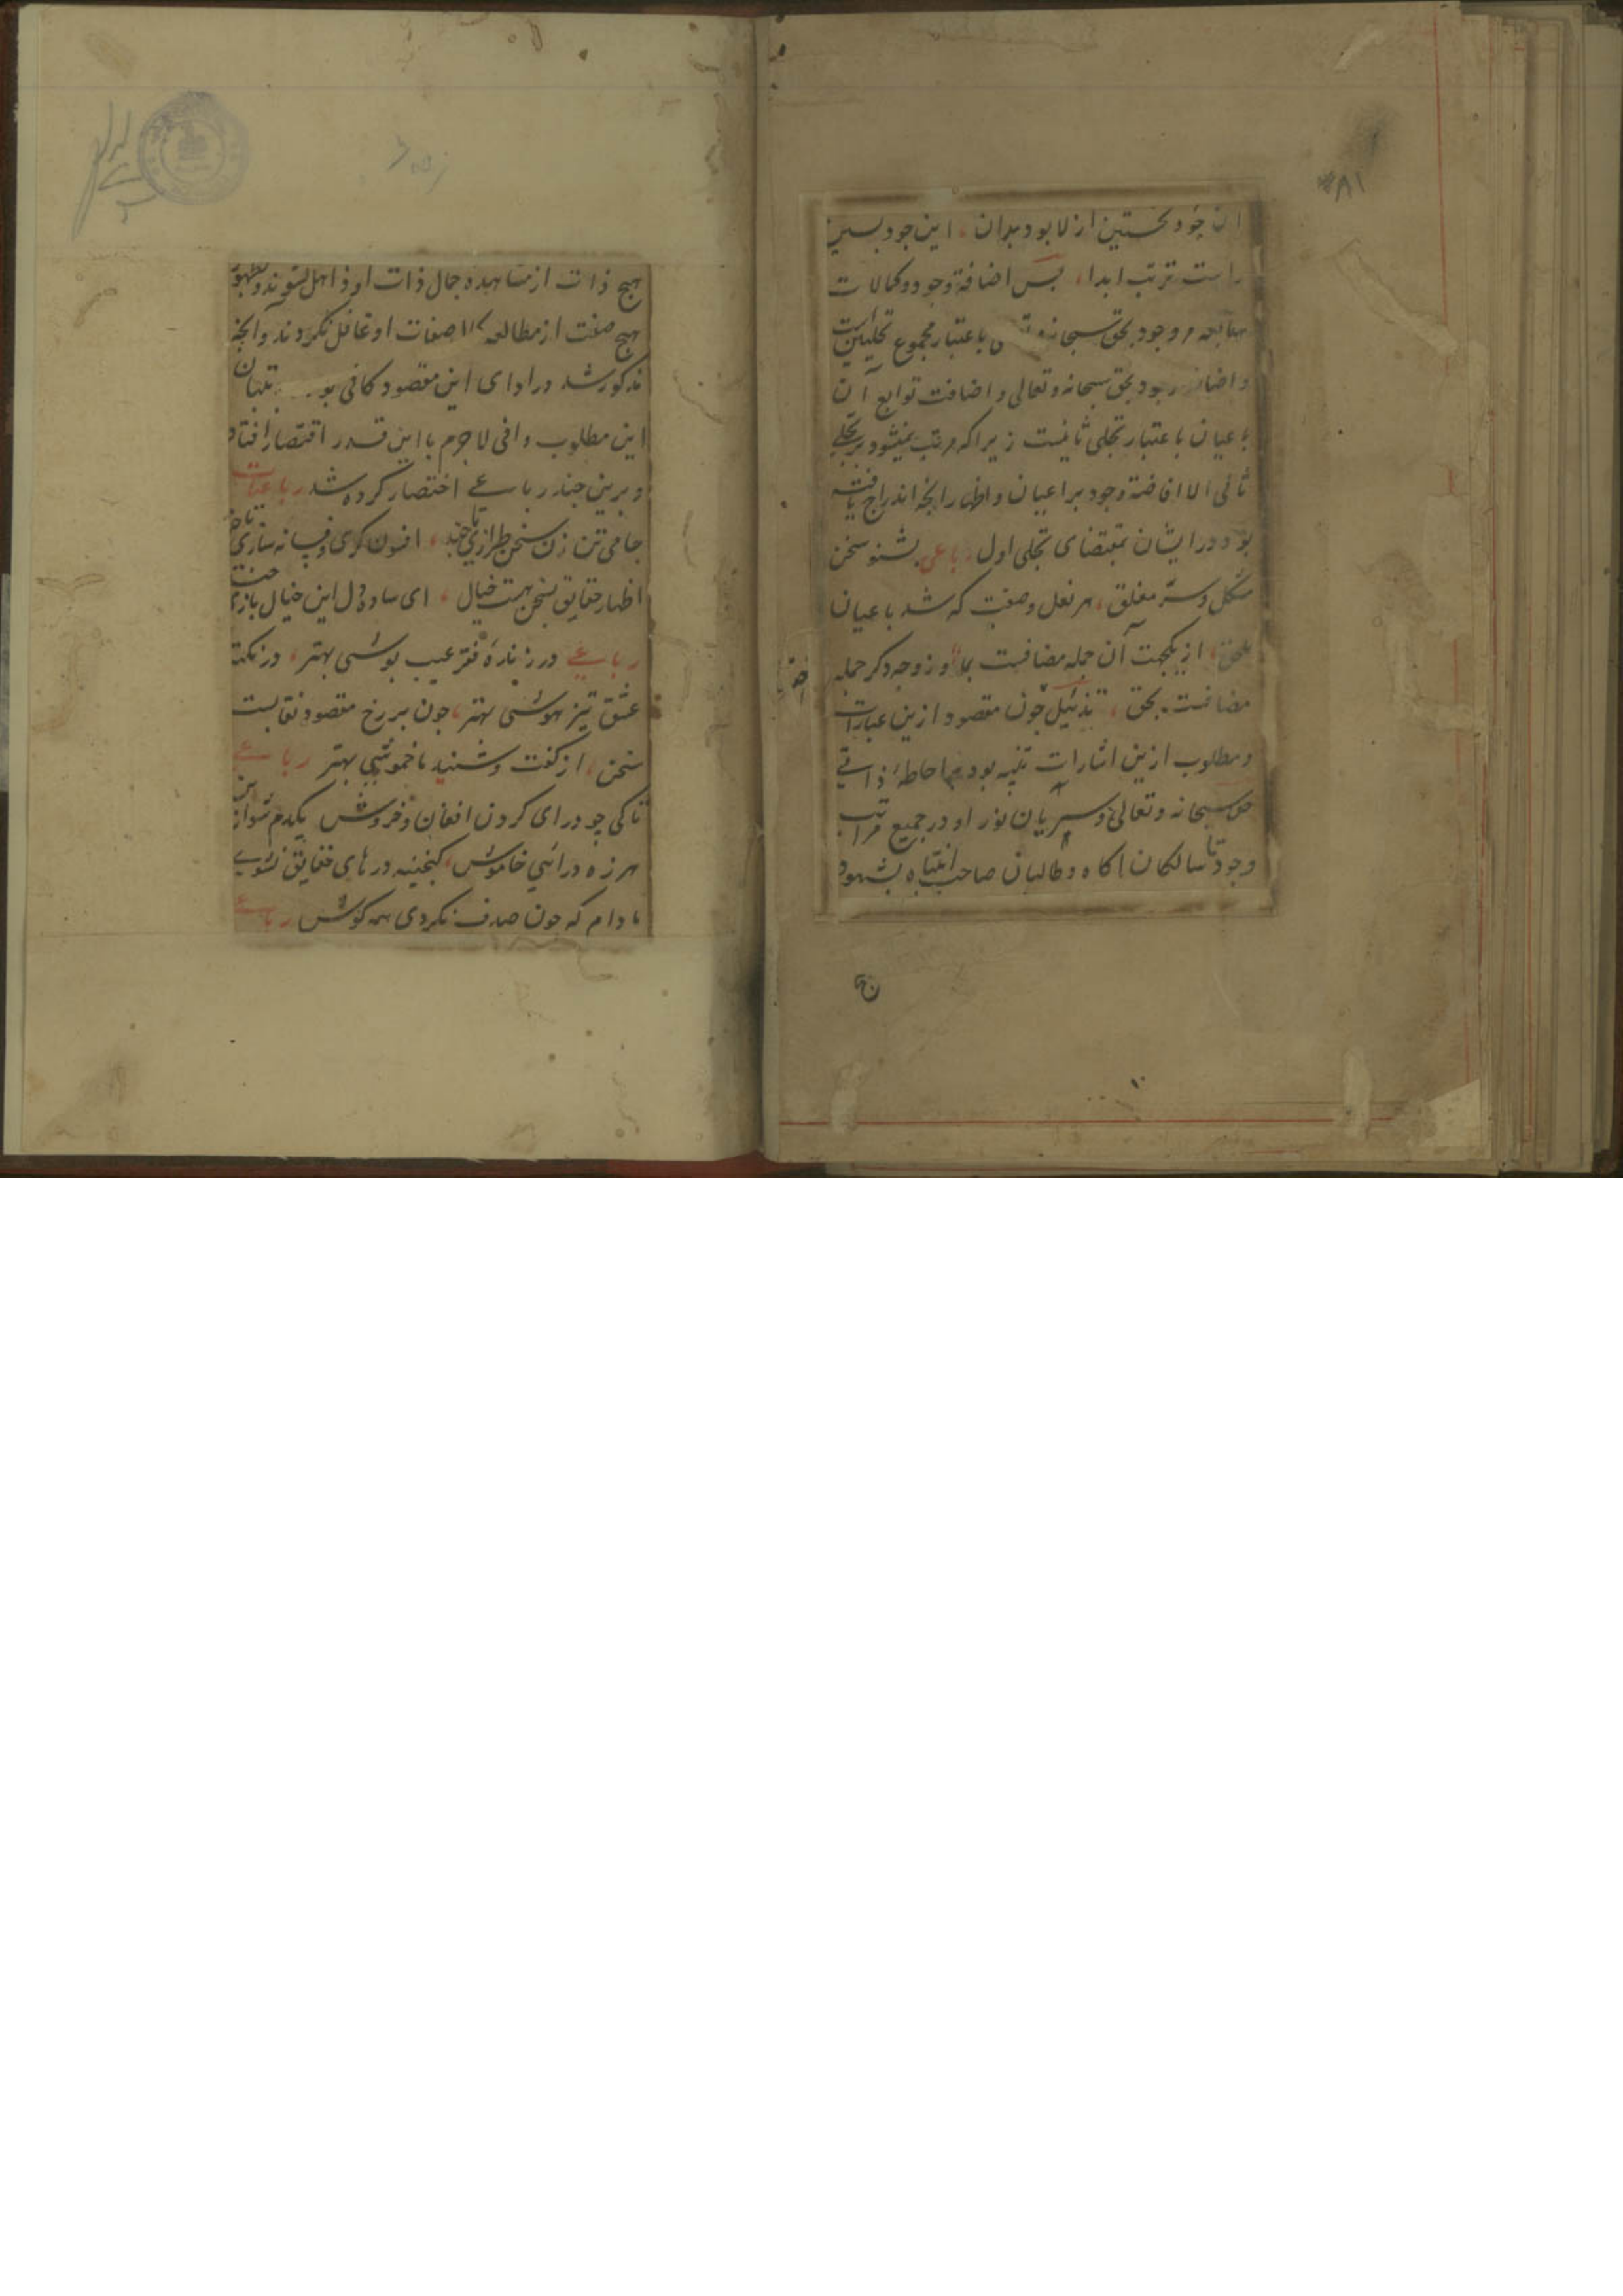 ان جود نخستین ازلا بود بدان، این جود پسین
راست ترتب ابدا، پس اضافة وجود و کمالات
تابعه مر وجود بحق سبحانه و باعتبار مجموع تجلیین است
و اضافت وجود بحق سبحانه و تعالی و اضافت توابع آن
باعیان باعتبار تجلی ثانیست زیرا که مرتب نمیشود بر تجلی
ثانی الا افاضة وجود بر اعیان و اظهار انچه اندراج یافته
بود در ایشان بمقتضای تجلی اول رباعی بشنو سخن
مشکل و سرّ مغلق، هر فعل و صفت که شد باعیان
ملحق، از یکجهت آن جمله مضافست بما، وز وجه دکر جمله
مضافست بحق، تذئیل چون مقصود ازین عبارات
و مطلوب ازین اشارات تنبیه بود بر احاطهٔ ذاتی
حق سبحانه و تعالی و سریان نور او در جمیع مراتب
وجود تا سالکان اکاه و طالبان صاحب انتباه بشهود
۸۱
هیچ ذات از مشاهده جمال ذات او ذاهل نشوند و بظهور
هیچ صفت از مطالعه کمال صفات او غافل نکردند و آنچه
مذکور شد در ادای این مقصود کافی بود تبیان
این مطلوب وافی لاجرم با این قدر اقتصار افتاد
و برین چند رباعی اختصار کرده شد رباعیات
جامی تن زن سخن طرازی تا چند، افسون کری و فسانه سازی تا چند
اظهار حقایق بسخن هست خیال، ای ساده دل این خیال بازی تا چند
رباعی در ژندهٔ فقر عیب پوشی بهتر، در نکته
عشق تیز هوشی بهتر، چون بر رخ مقصود نقابست
سخن، از کفت و شنید ما خموشی بهتر رباعی
تا کی چو درای کردن افغان و خروش یکدم شو ازین
هرزه درائی خاموش، کنجینه درهای حقایق نشوی
مادام که چون صدف نکردی همه کوش رباعی